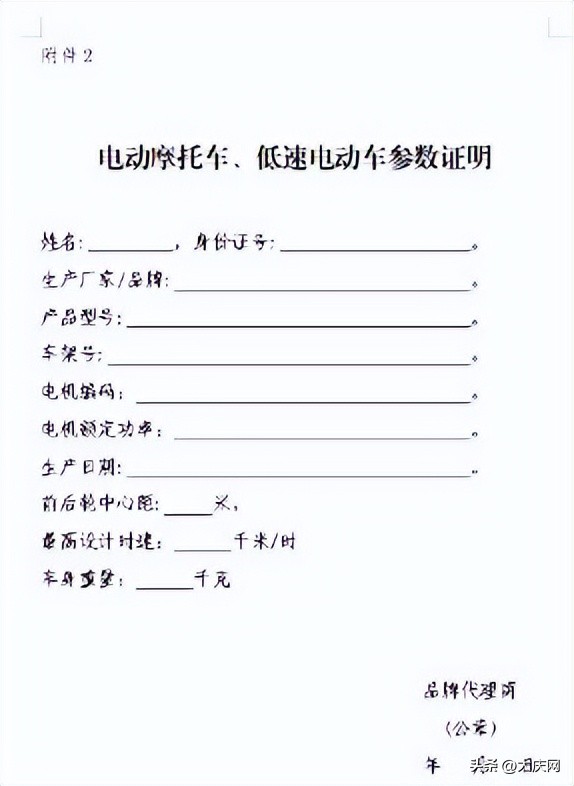 附件2
电动摩托车、低速电动车参数证明
姓名:________,身份证号:__________________。
生产厂家/品牌:____________________________。
产品型号:________________________________。
车架号:__________________________________。
电机编码:________________________________。
电机额定功率:____________________________。
生产日期:________________________________。
前后轮中心距:_____米,
最高设计时速:______千米/时
车身重量:______千克
品牌代理商
(公章)
年 月 日
头条 @大庆网